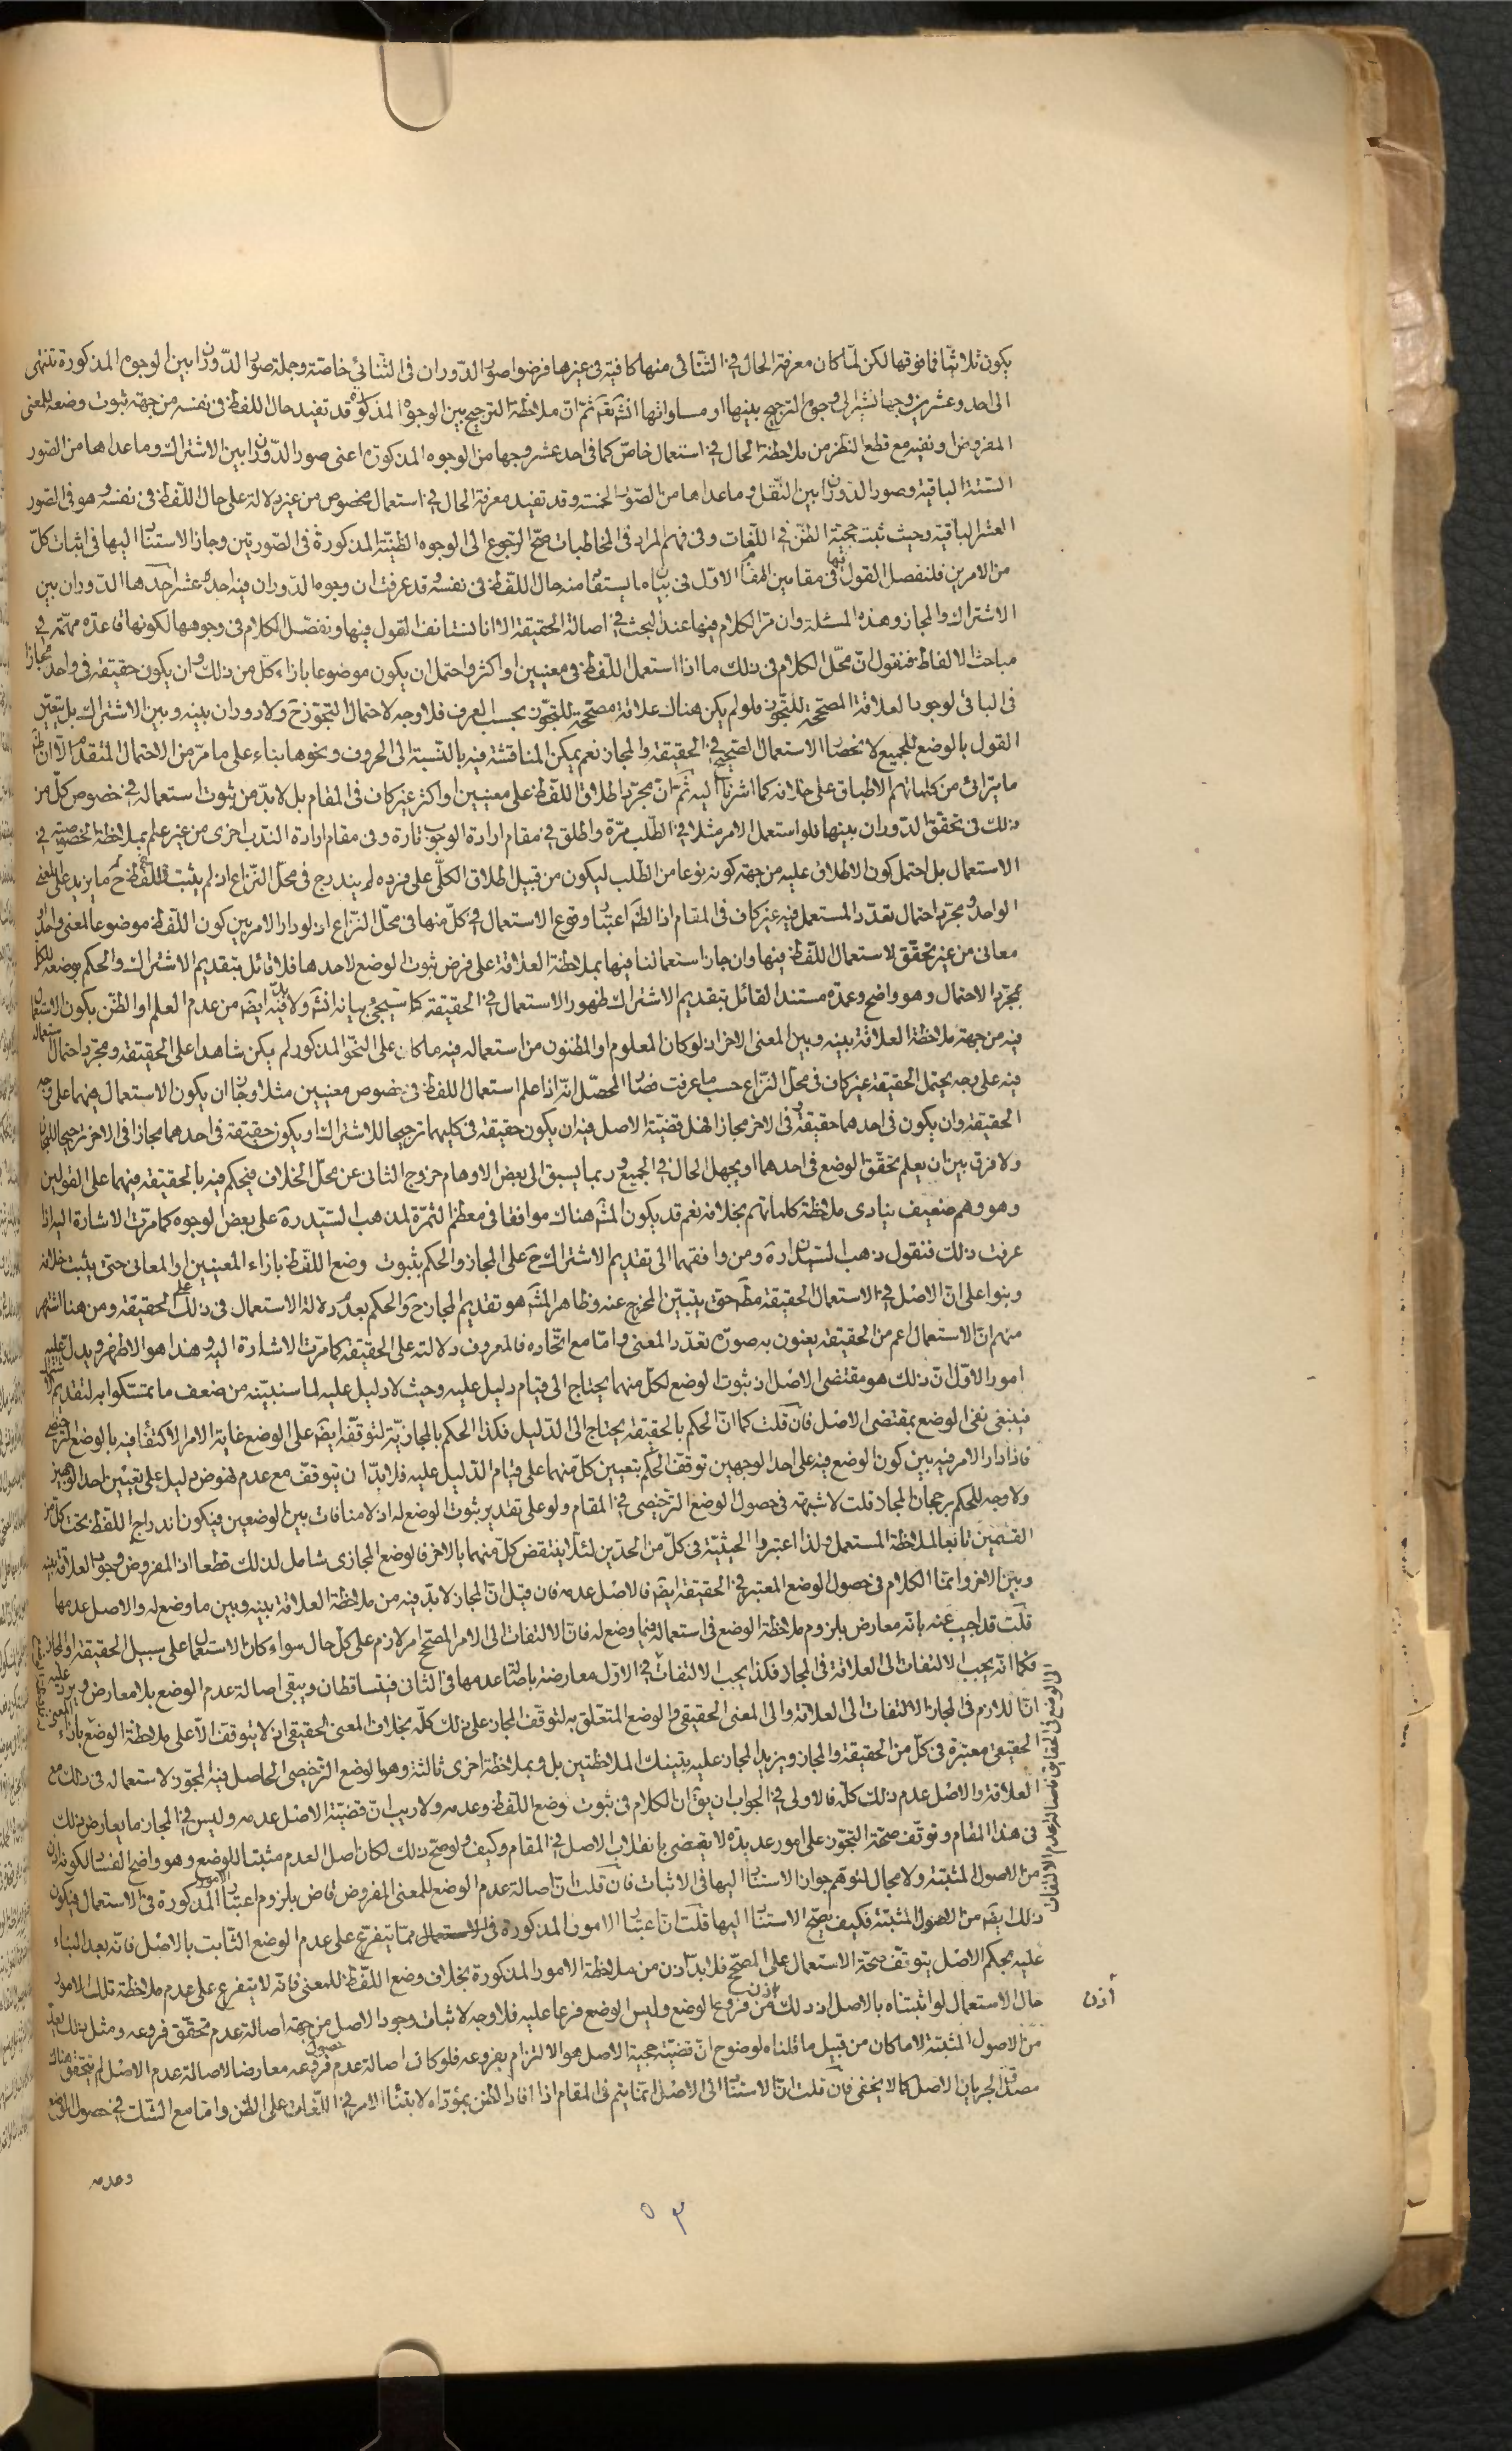 يكون ثلاثيا فما فوقها لكن لما كان معرفة الحال في الثنائي منها كافية في غيرها فرضوا صور الدوران في الثنائي خاصة وجملة صور الدوران بين الوجوه المذكورة تنتهى
الى احد وعشرين وجها نشير الى وجوه الترجيح بينها او مساواتها انش تعم ثم ان ملاحظة الترجيح بين الوجوه المذكورة قد تفيد حال اللفظ في نفسه من جهة ثبوت وضعه للمعنى
المفروض او نفيه مع قطع النظر من ملاحظة الحال في استعمال خاص كما في احد عشر وجها من الوجوه المذكورة اعنى صور الدوران بين الاشتراك وما عداها من الصور
الستة الباقية وصور الدوران بين النقل وما عداها من الصور الخمسة وقد تفيد معرفة الحال في استعمال مخصوص من غير دلالة على حال اللفظ في نفسه وهو في الصور
العشر الباقية وحيث ثبت حجية الظن في اللغات وفي فهم المراد في المخاطبات صح الرجوع الى الوجوه الظنية المذكورة في الصورتين وجاز الاستناد اليها في اثبات كل
من الامرين فلنفصل القول فيها في مقامين المقام الاول في بيان ما يستفاد منه حال اللفظ في نفسه قد عرفت ان وجوه الدوران فيه احد عشر احدها الدوران بين
الاشتراك والمجاز وهذه المسئلة وان مر الكلام فيها عند البحث في اصالة الحقيقة الا انا نستانف القول فيها ونفصل الكلام في وجوهها لكونها قاعدة مهمة في
مباحث الالفاظ فنقول ان محل الكلام في ذلك ما اذا استعمل اللفظ في معنيين او اكثر واحتمل ان يكون موضوعا بازاء كل من ذلك وان يكون حقيقة في واحد مجازا
في الباقي لوجود العلاقة المصححة للتجوز فلو لم يكن هناك علاقة مصححة للتجوز بحسب العرف فلا وجه لاحتمال التجوز ح ولا دوران بينه وبين الاشتراك بل يتعين
القول بالوضع للجميع لانحصار الاستعمال الصحيح في الحقيقة والمجاز نعم يمكن المناقشة فيه بالنسبة الى الحروف ونحوها بناء على ما مر من الاحتمال المتقدم الا ان ظ
ما يترائى من كلماتهم الاطباق على خلافه كما اشرنا اليه ثم ان مجرد اطلاق اللفظ على معنيين او اكثر غير كاف في المقام بل لا بد من ثبوت استعماله في خصوص كل من
ذلك في تحقق الدوران بينها فلو استعمل الامر مثلا في الطلب مرة واطلق في مقام ارادة الوجوب تارة وفي مقام ارادة الندب اخرى من غير علم بملاحظة الخصوصية في
الاستعمال بل احتمل كون الاطلاق عليه من جهة كونه نوعا من الطلب ليكون من قبيل اطلاق الكلي على فرده لم يندرج في محل النزاع اذ لم يثبت للفظ ح ما يزيد على المعنى
الواحد ومجرد احتمال تعدد المستعمل فيه غير كاف في المقام اذ الظ اعتبار وقوع الاستعمال في كل منها في محل النزاع اذ لو دار الامر بين كون اللفظ موضوعا لمعنى واحد او
معانى من غير تحقق لاستعمال اللفظ فيها وان جاز استعمالنا فيها بملاحظة العلاقة على فرض ثبوت الوضع لاحدها فلا قائل بتقديم الاشتراك والحكم بوضعه للكل
بمجرد الاحتمال وهو واضح وعمدة مستند القائل بتقديم الاشتراك ظهور الاستعمال في الحقيقة كما سيجئ بيانه انش ولا بد فيه ايض من عدم العلم او الظن بكون الاستعمال
فيه من جهة ملاحظة العلاقة بينه وبين المعنى الاخر اذ لو كان المعلوم او المظنون من استعماله فيه ما كان على النحو المذكور لم يكن شاهدا على الحقيقة ومجرد احتمال استعماله
فيه على وجه يحتمل الحقيقة غير كاف في محل النزاع حسب ما عرفت فصار المحصل انه اذا علم استعمال اللفظ في خصوص معنيين مثلا وجاز ان يكون الاستعمال فيهما على وجه
الحقيقة وان يكون في احدهما حقيقة وفي الاخر مجازا فهل قضية الاصل فيه ان يكون حقيقة في كليهما ترجيحا للاشتراك او يكون حقيقة في احدهما مجازا في الاخر ترجيحا للمجاز
ولا فرق بين ان يعلم تحقق الوضع في احدهما او يجهل الحال في الجميع وربما يسبق الى بعض الاوهام خروج الثاني عن محل الخلاف فيحكم فيه بالحقيقة فيهما على القولين
وهو وهم ضعيف ينادى ملاحظة كلماتهم بخلافه نعم قد يكون المش هناك موافقا في معظم الثمرة لمذهب السيد ره على بعض الوجوه كما مرت الاشارة اليه اذا
عرفت ذلك فنقول ذهب السيدان ره ومن وافقهما الى تقديم الاشتراك ح على المجاز والحكم بثبوت وضع اللفظ بازاء المعنيين او المعانى حتى يثبت خلافه
وبنوا على ان الاصل في الاستعمال الحقيقة مط حتى يتبين المخرج عنه وظاهر المش هو تقديم المجاز ح والحكم بعدم دلالة الاستعمال في ذلك على الحقيقة ومن هنا اشتهر
منهم ان الاستعمال اعم من الحقيقة يعنون به صورة تعدد المعنى واما مع اتحاده فالمعروف دلالته على الحقيقة كما مرت الاشارة اليه وهذا هو الاظهر ويدل عليه
امور الاول ان ذلك هو مقتضى الاصل اذ ثبوت الوضع لكل منهما يحتاج الى قيام دليل عليه وحيث لا دليل عليه لما سنبينه من ضعف ما تمسكوا به لتقديم الاشتراك
فينبغي نفى الوضع بمقتضى الاصل فان قلت كما ان الحكم بالحقيقة يحتاج الى الدليل فكذا الحكم بالمجازية لتوقفه ايض على الوضع غاية الامر الاكتفاء فيه بالوضع الترخيصي
فاذا دار الامر فيه بين كون الوضع فيه على احد الوجهين توقف الحكم بتعيين كل منهما على قيام الدليل عليه فلا بد ان يتوقف مع عدم نهوض دليل على تعيين احد الوجهين
ولا وجه للحكم برجحان المجاز قلت لا شبهة في حصول الوضع الترخيصي في المقام ولو على تقدير ثبوت الوضع له اذ لا منافات بين الوضعين فيكون اندراج اللفظ تحت كل من
القسمين تابعا لملاحظة المستعمل ولذا اعتبروا الحيثية في كل من الحدين لئلا ينتقض كل منهما بالاخر فالوضع المجازى شامل لذلك قطعا اذ المفروض وجود العلاقة بينه
وبين الاخر وانما الكلام في حصول الوضع المعتبر في الحقيقة ايض فالاصل عدمه فان قيل ان المجاز لا بد فيه من ملاحظة العلاقة بينه وبين ما وضع له والاصل عدمها
قلت قد اجيب عنه بانه معارض بلزوم ملاحظة الوضع في استعماله فيما وضع له فان الالتفات الى الامر المصحح امر لازم على كل حال سواء كان الاستعمال على سبيل الحقيقة او المجاز
فكما انه يجب الالتفات الى العلاقة في المجاز فكذا يجب الالتفات في الاول معارضة باصالة عدمها في الثاني فيتساقطان ويبقى اصالة عدم الوضع بلا معارض ويرد عليه
ان اللازم في المجاز الالتفات الى العلاقة والى المعنى الحقيقي والوضع المتعلق به لتوقف المجاز على ذلك كله بخلاف المعنى الحقيقي اذ لا يتوقف الا على ملاحظة الوضع بازاء المعنى
الحقيقي معتبرة في كل من الحقيقة والمجاز ويزيد المجاز عليه بتينك الملاحظتين بل وبملاحظة اخرى ثالثة وهو الوضع الترخيصي الحاصل فيه المجوز لاستعماله في ذلك مع
العلاقة والاصل عدم ذلك كله فالاولى في الجواب ان يق ان الكلام في ثبوت وضع اللفظ وعدمه ولا ريب ان قضية الاصل عدمه وليس في المجاز ما يعارض ذلك
في هذا المقام وتوقف صحة التجوز على امور عديدة لا يقضى بانقلاب الاصل في المقام وكيف ولو صح ذلك لكان اصل العدم مثبتا للوضع وهو واضح الفساد لكونه اذن
من الاصول المثبتة ولا مجال لتوهم جواز الاستناد اليها في الاثبات فان قلت ان اصالة عدم الوضع للمعنى المفروض قاض بلزوم اعتبار الامور المذكورة في الاستعمال فيكون
ذلك ايض من الاصول المثبتة فكيف يصح الاستناد اليها قلت ان اعتبار الامور المذكورة في الاستعمال مما يتفرع على عدم الوضع الثابت بالاصل فانه بعد البناء
عليه بحكم الاصل يتوقف صحة الاستعمال على المصحح فلا بد اذن من ملاحظة الامور المذكورة بخلاف وضع اللفظ للمعنى فانه لا يتفرع على عدم ملاحظة تلك الامور
حال الاستعمال لو اثبتناه بالاصل اذ ذلك اذن من فروع الوضع وليس الوضع فرعا عليه فلا وجه لاثبات وجود الاصل من جهة اصالة عدم تحقق فروعه ومثل ذلك يعد
من الاصول المثبتة الا ما كان من قبيل ما قلناه لوضوح ان قضية حجية الاصل هو الالتزام بفروعه فلو كان اصالة عدم حصول فروعه معارضا لاصالة عدم الاصل لم يتحقق هناك
مصداق لجريان الاصل كما لا يخفى فان قلت ان الاستناد الى الاصل انما يتم في المقام اذا افاد الظن بمؤداه لابتناء الامر في اللغات على الظن واما مع الشك في حصول الوضع
الى الوضع في الحقايق فاصالة عدم الالتفات
أذن
وعدمه
٥٣